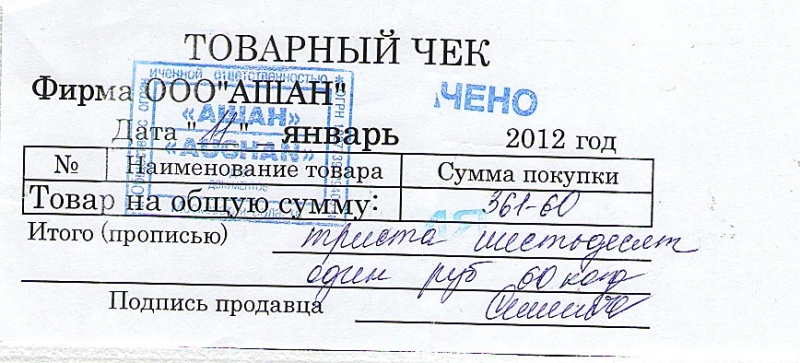 ТОВАРНЫЙ ЧЕК
ИЧЕННОЙ ОТВЕТСТВЕННОСТЬЮ
Фирма ООО"АШАН"
ЧЕНО
«АШАН»
Дата "11" январь 2012 год
«AUCHAN»
№ Наименование товара Сумма покупки
ДОКУМЕНТОВ
Товар на общую сумму: 361-60
Итого (прописью) триста шестьдесят
один руб 60 коп
Подпись продавца